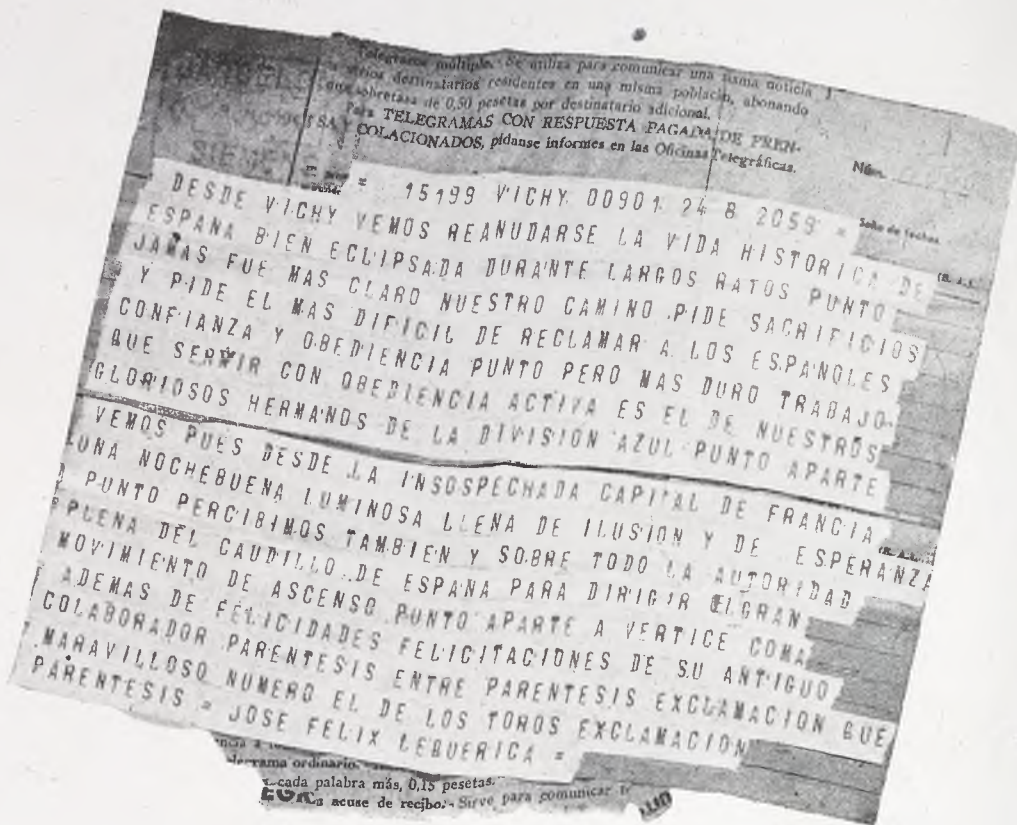 Telegramas múltiple. Se utiliza para comunicar una misma noticia
a varios destinatarios residentes en una misma población, abonando
una sobretasa de 0,50 pesetas por destinatario adicional.
Para TELEGRAMAS CON RESPUESTA PAGADA DE PREN-
COLACIONADOS, pídanse informes en las Oficinas Telegráficas.
Núm.
= 15199 VICHY 00901 24 8 2059 =
Sello de fechas
DESDE VICHY VEMOS REANUDARSE LA VIDA HISTORICA DE
ESPANA BIEN ECLIPSADA DURANTE LARGOS RATOS PUNTO
JAMAS FUE MAS CLARO NUESTRO CAMINO PIDE SACRIFICIOS
Y PIDE EL MAS DIFICIL DE RECLAMAR A LOS ESPANOLES
CONFIANZA Y OBEDIENCIA PUNTO PERO MAS DURO TRABAJO
QUE SERVIR CON OBEDIENCIA ACTIVA ES EL DE NUESTROS
GLORIOSOS HERMANOS DE LA DIVISION AZUL PUNTO APARTE
VEMOS PUES DESDE LA INSOSPECHADA CAPITAL DE FRANCIA
UNA NOCHEBUENA LUMINOSA LLENA DE ILUSION Y DE ESPERANZA
PUNTO PERCIBIMOS TAMBIEN Y SOBRE TODO LA AUTORIDAD
PLENA DEL CAUDILLO DE ESPANA PARA DIRIGIR EL GRAN
MOVIMIENTO DE ASCENSO PUNTO APARTE A VERTICE COMA
ADEMAS DE FELICIDADES FELICITACIONES DE SU ANTIGUO
COLABORADOR PARENTESIS ENTRE PARENTESIS EXCLAMACION QUE
MARAVILLOSO NUMERO EL DE LOS TOROS EXCLAMACION
PARENTESIS = JOSE FELIX LEQUERICA =
ordinario.
cada palabra más, 0,15 pesetas.
acuse de recibo. - Sirve para comunicar